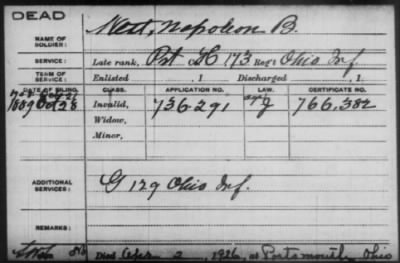 DEAD
NAME OF SOLDIER: Nett, Napoleon B.
SERVICE: Late rank, Pvt Co H, 173 Reg't Ohio Inf
TERM OF SERVICE: Enlisted , 1 Discharged , 1
DATE OF FILING. CLASS. APPLICATION NO. LAW. CERTIFICATE NO.
1889 Oct 28 Invalid, 736.291 G 766.382
Widow,
Minor,
ADDITIONAL SERVICES: G 129 Ohio Inf.
REMARKS:
Died Apr 2, 1926, at Portsmouth, Ohio